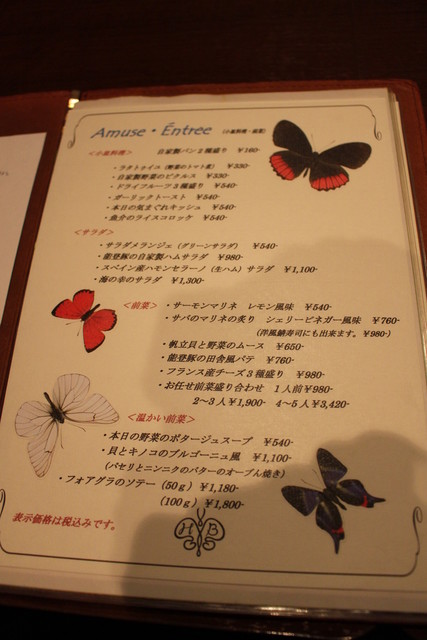 Amuse・Entree （小皿料理・前菜）
＜小皿料理＞ 自家製パン２種盛り ￥160-
・ラタトゥイユ（野菜のトマト煮） ￥330-
・自家製野菜のピクルス ￥330-
・ドライフルーツ３種盛り ￥540-
・ガーリックトースト ￥540-
・本日の気まぐれキッシュ ￥540-
・魚介のライスコロッケ ￥540-
＜サラダ＞
・サラダメランジェ（グリーンサラダ） ￥540-
・能登豚の自家製ハムサラダ ￥980-
・スペイン産ハモンセラーノ（生ハム）サラダ ￥1,100-
・海の幸のサラダ ￥1,300-
＜前菜＞ ・サーモンマリネ レモン風味 ￥540-
・サバのマリネの炙り シェリービネガー風味 ￥760-
（洋風鯖寿司にも出来ます。￥980-）
・帆立貝と野菜のムース ￥650-
・能登豚の田舎風パテ ￥760-
・フランス産チーズ３種盛り ￥980-
・お任せ前菜盛り合わせ １人前￥980-
２～３人￥1,900- ４～５人￥3,420-
＜温かい前菜＞
・本日の野菜のポタージュスープ ￥540-
・貝とキノコのブルゴーニュ風 ￥1,100-
（パセリとニンニクのバターのオーブン焼き）
・フォアグラのソテー（50ｇ）￥1,180-
（100ｇ）￥1,800-
H B
表示価格は税込みです。